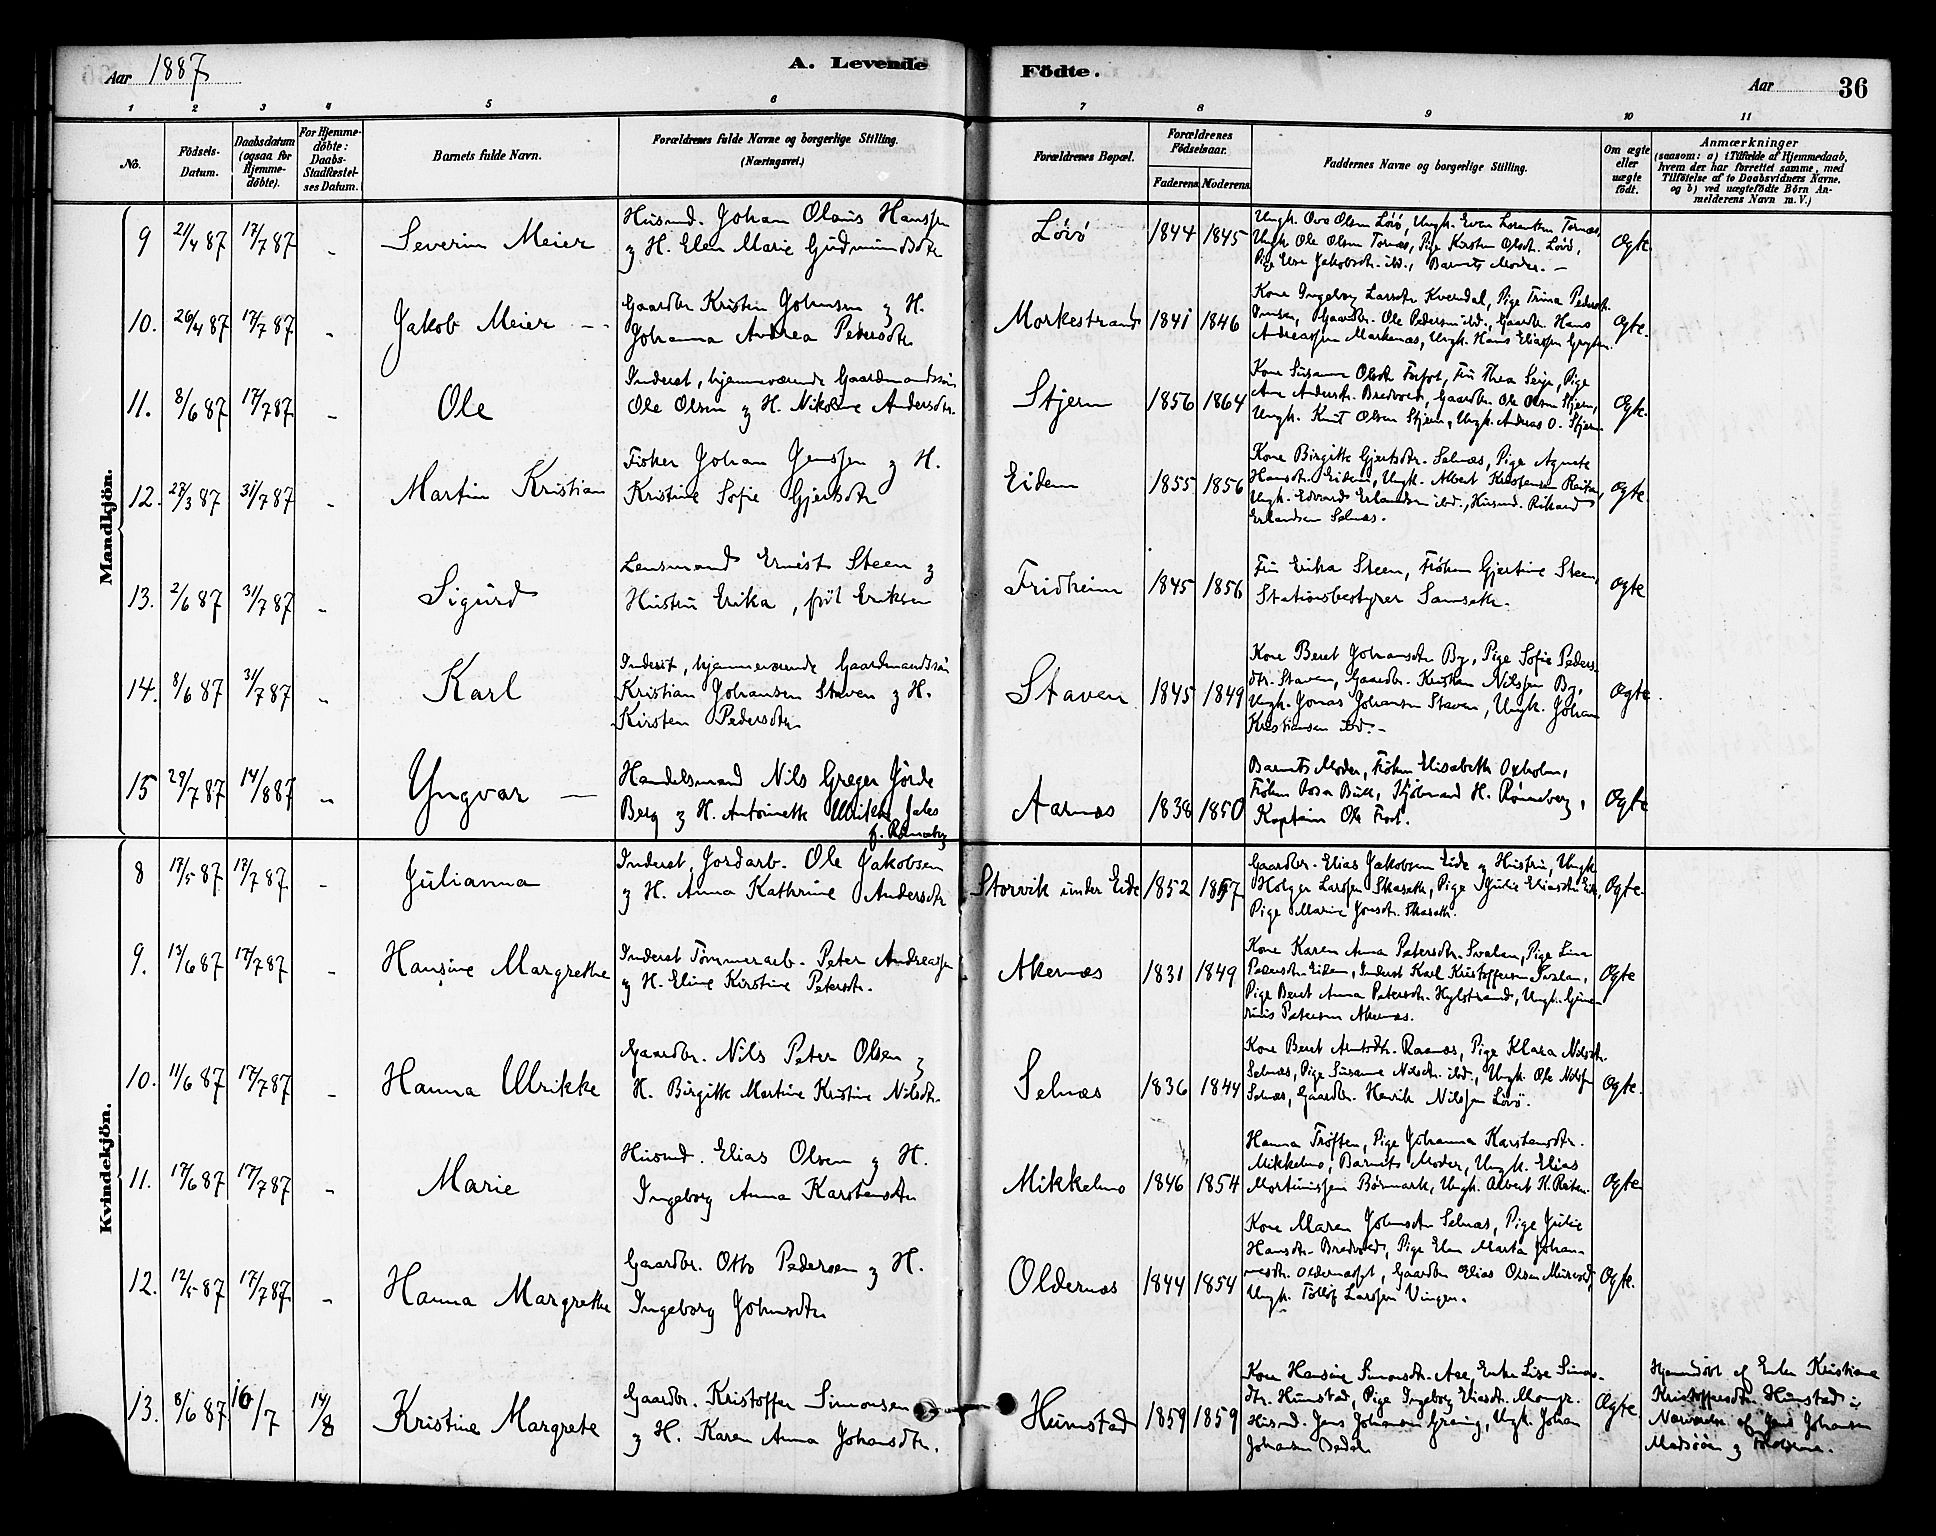 Aar 1887
A. Levende
Födte.
Aar
36
1 2 3 4 5 6 7 8 9 10 11
No.
Födsels-
Datum.
Daabsdatum
(ogsaa for
Hjemme-
döbte).
For Hjemme-
döbte:
Daabs-
Stadfæstel-
ses Datum.
Barnets fulde Navn.
Forældrenes fulde Navne og borgerlige Stilling.
(Næringsvei.)
Forældrenes Bopæl.
Forældrenes
Födselsaar.
Faderens Moderens
Faddernes Navne og borgerlige Stilling.
Om ægte
eller
uægte
födt.
Anmærkninger
(saasom: a) i Tilfælde af Hjemmedaab,
hvem der har forrettet samme, med
Tilföielse af to Daabsvidners Navne,
og b) ved uægtefödte Börn An-
melderens Navn m. V.)
Mandkjön.
9 21/4 87 17/7 87 Severin Meier
Husmd. Johan Olaus Hanssen
og H. Elen Marie Gudmundsdtr
Lövö 1844 1845
Ungk. Ove Olsen Lövö, Ungk. Even Lorentsen Tornæs,
Ungk. Ole Olsen Tornæs, Pige Kirsten Olsdtr. Lövö,
Pige Jakobsdtr. ibd., Barnets Moder. —
Ægte
10. 26/4 87 17/7 87 Jakob Meier —
Gaardbr. Kristin Johnsen og H.
Johanna Andrea Petersdtr
Morkestrand 1841 1846
Kone Ingeborg Larsdtr Kverndal, Pige Trina Pedersdtr.
Gaardbr. Ole Pedersen ibd., Gaardbr. Hans
Andreassen Markenæs, Ungk. Hans Eliassen
Ægte.
11. 8/6 87 17/7 87 Ole
Inderst, hjemmeværende Gaardmandssön
Ole Olsen og H. Nikoline Andersdtr.
Stjern 1856 1864
Kone Susanne Olsdtr Forfot, Fru Thea Seip, Pige
Ane Andersdtr. Bredvold, Gaardbr. Ole Olsen Stjern,
Ungk. Knut Olsen Stjern, Ungk. Andreas O. Stjern.
Ægte.
12. 27/3 87 31/7 87 Martin Kristian
Fisker Johan Jenssen og H.
Kristine Sofie Gjertsdtr
Eidem 1855 1856
Kone Birgitte Gjertsdtr. Selnæs, Pige Agnete
Hansdtr. Eidem, Ungk. Albert Kristensen Reitan,
Ungk. Edvard Erlandsen ibd., Husmd. Rikard
Erlandsen Selnæs.
Ægte.
13. 2/6 87 31/7 87 Sigurd
Lensmand Ernist Steen og
Hustru Erika, föd Eriksen
Fridheim 1845 1856
Fru Erika Steen, Fröken Gjertine Steen,
Stationsbestyrer
Ægte
14. 8/6 87 31/7 87 Karl
Inderst, hjemmeværende Gaardmandssön
Kristian Johansen Staven og H.
Kirsten Pedersdtr
Staven 1845 1849
Kone Beret Johansdtr By, Pige Sofie Peders-
dtr. Staven, Gaardbr. Kristian Nilssen By,
Ungk. Jonas Johansen Staven, Ungk. Johan
Kristiansen ibd. —
Ægte.
15 29/7 87 14/8 87 Yngvar —
Handelsmand Nils Greger Jörde
Berg og H. Antoinette Ulrikke
f. Rönneberg
Aarnæs 1838 1850
Barnets Moder, Fröken Elisabeth Oxholm,
Fröken Rosa Bull, Kjöbmand H. Rönneberg,
Kaptein Ole Frost.
Ægte
Kvindekjön.
8 17/5 87 17/7 87 Julianna
Inderst, Jordarb. Ole Jakobsen
og H. Anna Kathrine Andersdtr
Storvik under Eide 1852 1857
Gaardbr. Elias Jakobsen Eide og Hustru, Ungk.
Holger Larssen Skaseth, Pige Julie Eliasdtr Eide,
Pige Marie Jonsdtr. Skaseth.
Ægte.
9. 13/6 87 17/7 87 Hansine Margrethe
Inderst Tömmerarb. Peter Andreassen
og H. Eline Kirstine Petersdtr.
Akernæs 1831 1849
Kone Karen Anna Petersdtr. Svalan, Pige Lina
Pedersdtr Eidem, Inderst Karl Kristoffersen Svalan,
Pige Beret Anna Petersdtr. Hylstrand, Ungk. Gune-
rius Petersen Akernæs.
Ægte
10. 11/6 87 17/7 87 Hanna Ulrikke
Gaardbr. Nils Peter Olsen og
H. Birgitte Martine Kristine Nilsdtr.
Selnæs 1836 1844
Kone Beret Arntsdtr. Raanæs, Pige Klara Nilsdtr.
Selnæs, Pige Susanne Nilsdtr. ibd., Ungk. Ole Nilssen
Selnæs, Gaardbr. Henrik Nilssen Lövö.
Ægte.
11. 17/6 87 17/7 87 Marie
Husmd. Elias Olsen og H.
Ingeborg Anna Karstensdtr
Mikkelmo 1846 1854
Hanna Tröften, Pige Johanna Karstensdtr.
Mikkelmo, Barnets Moder, Ungk. Elias
Mortinussen Börmark, Ungk. Albert K. Reitan.
Ægte
12. 12/5 87 17/7 87 Hanna Margrethe
Gaardbr. Otto Pedersen og H.
Ingeborg Johnsdtr
Oldernæs 1844 1854
Kone Maren Johnsdtr Selnæs, Pige Julie
Hansdtr. Bredvold, Pige Elen Marta Johan-
nesdtr. Gaardbr Elias Olsen
Ungk. Larssen Vingen.
Ægte.
13. 8/6 87 10/7 14/8 Kristine Margrete
Gaardbr. Kristoffer Simonsen
og H. Karen Anna Johansdtr.
Humstad 1859 1859
Kone Hansine Simonsdtr. Aae, Enke Lise Simons-
dtr. Humstad, Pige Ingeborg Eliasdtr.
Husmd. Jens Johansen Græning, Ungk. Johan
Johansen
Ægte.
Hjemmedöbt af Enken Kristiane
Kristoffersdtr. Humstad i
Nærværelse af Jens Johansen
Madsöen og Forældrene.